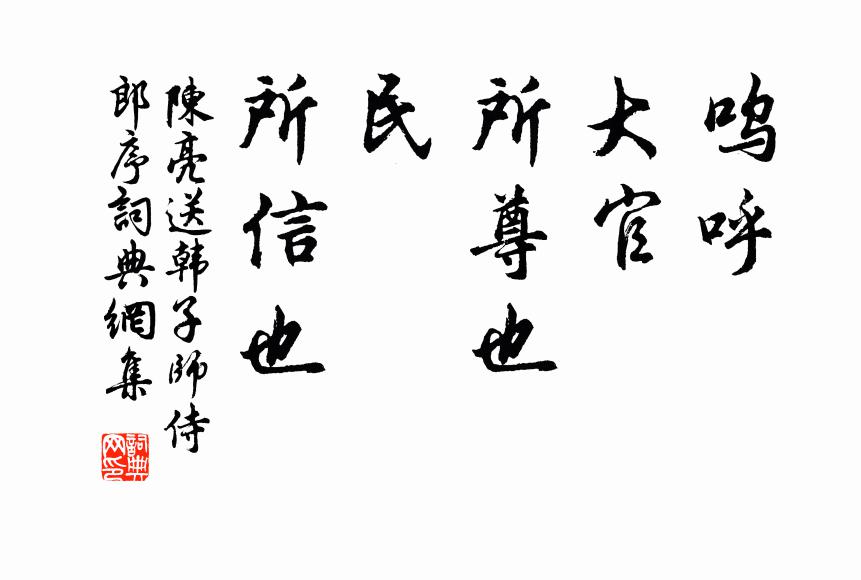 呜呼
大官
所尊也
民
所信也
陳亮送韩子師侍
郎序詞典網集
詞典
网印